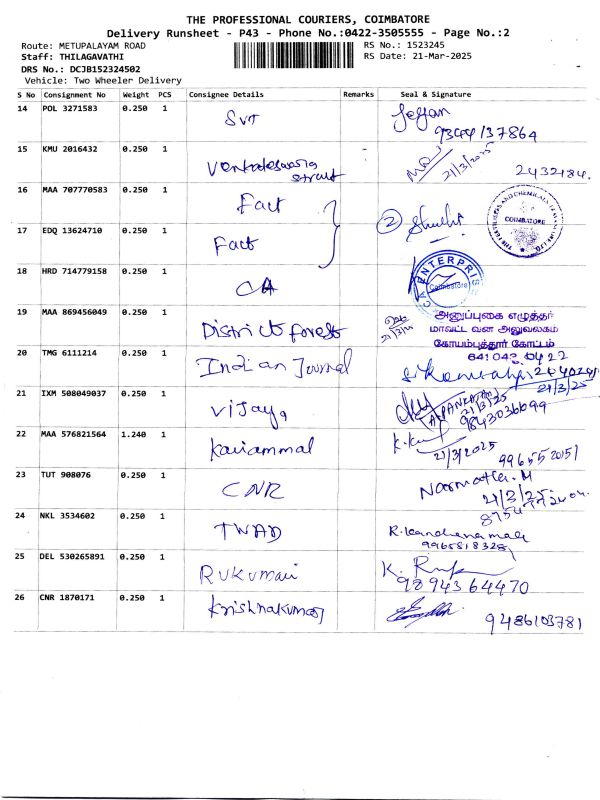 THE PROFESSIONAL COURIERS, COIMBATORE
Delivery Runsheet - P43 - Phone No.:0422-3505555 - Page No.:2
Route: METUPALAYAM ROAD
RS No.: 1523245
Staff: THILAGAVATHI
RS Date: 21-Mar-2025
DRS No.: DCJB152324502
Vehicle: Two Wheeler Delivery
S No Consignment No Weight PCS Consignee Details Remarks Seal & Signature
14 POL 3271583 0.250 1 SVT Jeyan
9344137864
15 KMU 2016432 0.250 1 Venkateswara street 21/3/2025 2432184.
16 MAA 707770583 0.250 1 Fact
17 EDQ 13624710 0.250 1 Fact 2
COIMBATORE
18 HRD 714779158 0.250 1 CA
CA ENTERPRISE
Coimbatore
19 MAA 869456049 0.250 1 District forest
அனுப்புகை எழுத்தர்
மாவட்ட வன அலுவலகம்
கோயம்புத்தூர் கோட்டம்
641 043
20 TMG 6111214 0.250 1 Indian Journal
21/3/25
21 IXM 508049037 0.250 1 Vijaya
21/3/25
9843036099
22 MAA 576821564 1.240 1 Kaviammal
21/3/2025
9965520151
23 TUT 908076 0.250 1 CNR Narmatha. M
21/3/25
24 NKL 3534602 0.250 1 TWAD R. Kanchanamala
25 DEL 530265891 0.250 1 Rukumani
9894364470
26 CNR 1870171 0.250 1 Krishnakumar
9486103781